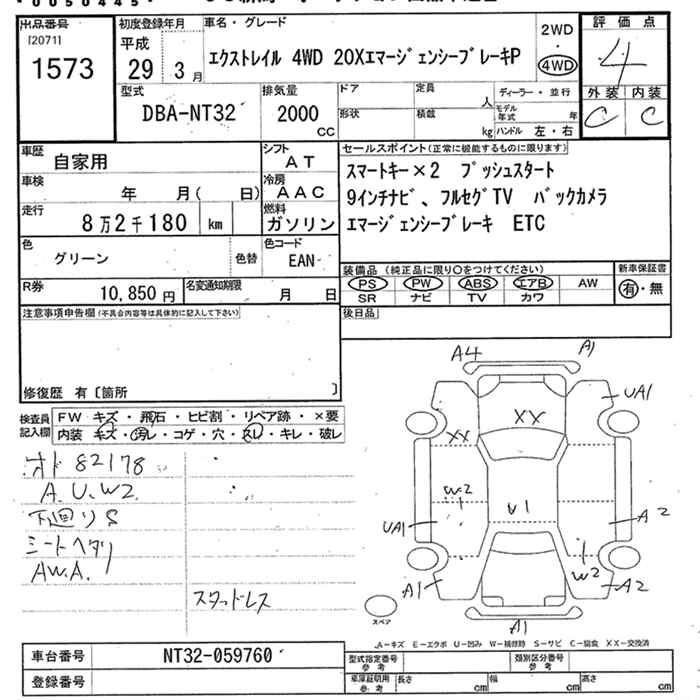 出品番号
[2071]
1573
初度登録年月
平成
29年 3月
車名・グレード
エクストレイル 4WD 20XエマージェンシーブレーキP
2WD
・
4WD
評価点
4
外装 内装
C C
型式
DBA-NT32
排気量
2000
cc
ドア
形状
定員
人
積載
kg
ディーラー・並行
モデル年式 年
ハンドル 左・右
車歴
自家用
シフト
AT
車検
年 月( 日)
冷房
AAC
走行
8万2千180 km
燃料
ガソリン
色
グリーン
色替
色コード
EAN
R券
10,850円
名変通知期限
月 日
セールスポイント(正常に機能するものに限ります)
スマートキー×2 プッシュスタート
9インチナビ、フルセグTV バックカメラ
エマージェンシーブレーキ ETC
装備品(純正品に限り○をつけてください)
PS PW ABS エアB AW
SR ナビ TV カワ
新車保証書
有・無
後日品
注意事項申告欄(不具合内容等は具体的に記入して下さい)
修復歴 有〔箇所 〕
検査員
記入欄
FW キズ・飛石・ヒビ割・リペア跡・×要
内装 キズ・汚レ・コゲ・穴・スレ・キレ・破レ
オド 82178
A.U.W2.
下廻りS
シートヘタリ
AW.A.
スタッドレス
A4 A1
UA1
XX
XX
W2
U1
UA1
A2
W2
A1
A2
A1
スペア
A-キズ E-エクボ U-凹み W-補修跡 S-サビ C-腐食 XX-交換済
車台番号
NT32-059760
登録番号
型式指定番号
参考
類別区分番号
参考
車庫証明用
参考
長さ cm
幅 cm
高さ cm